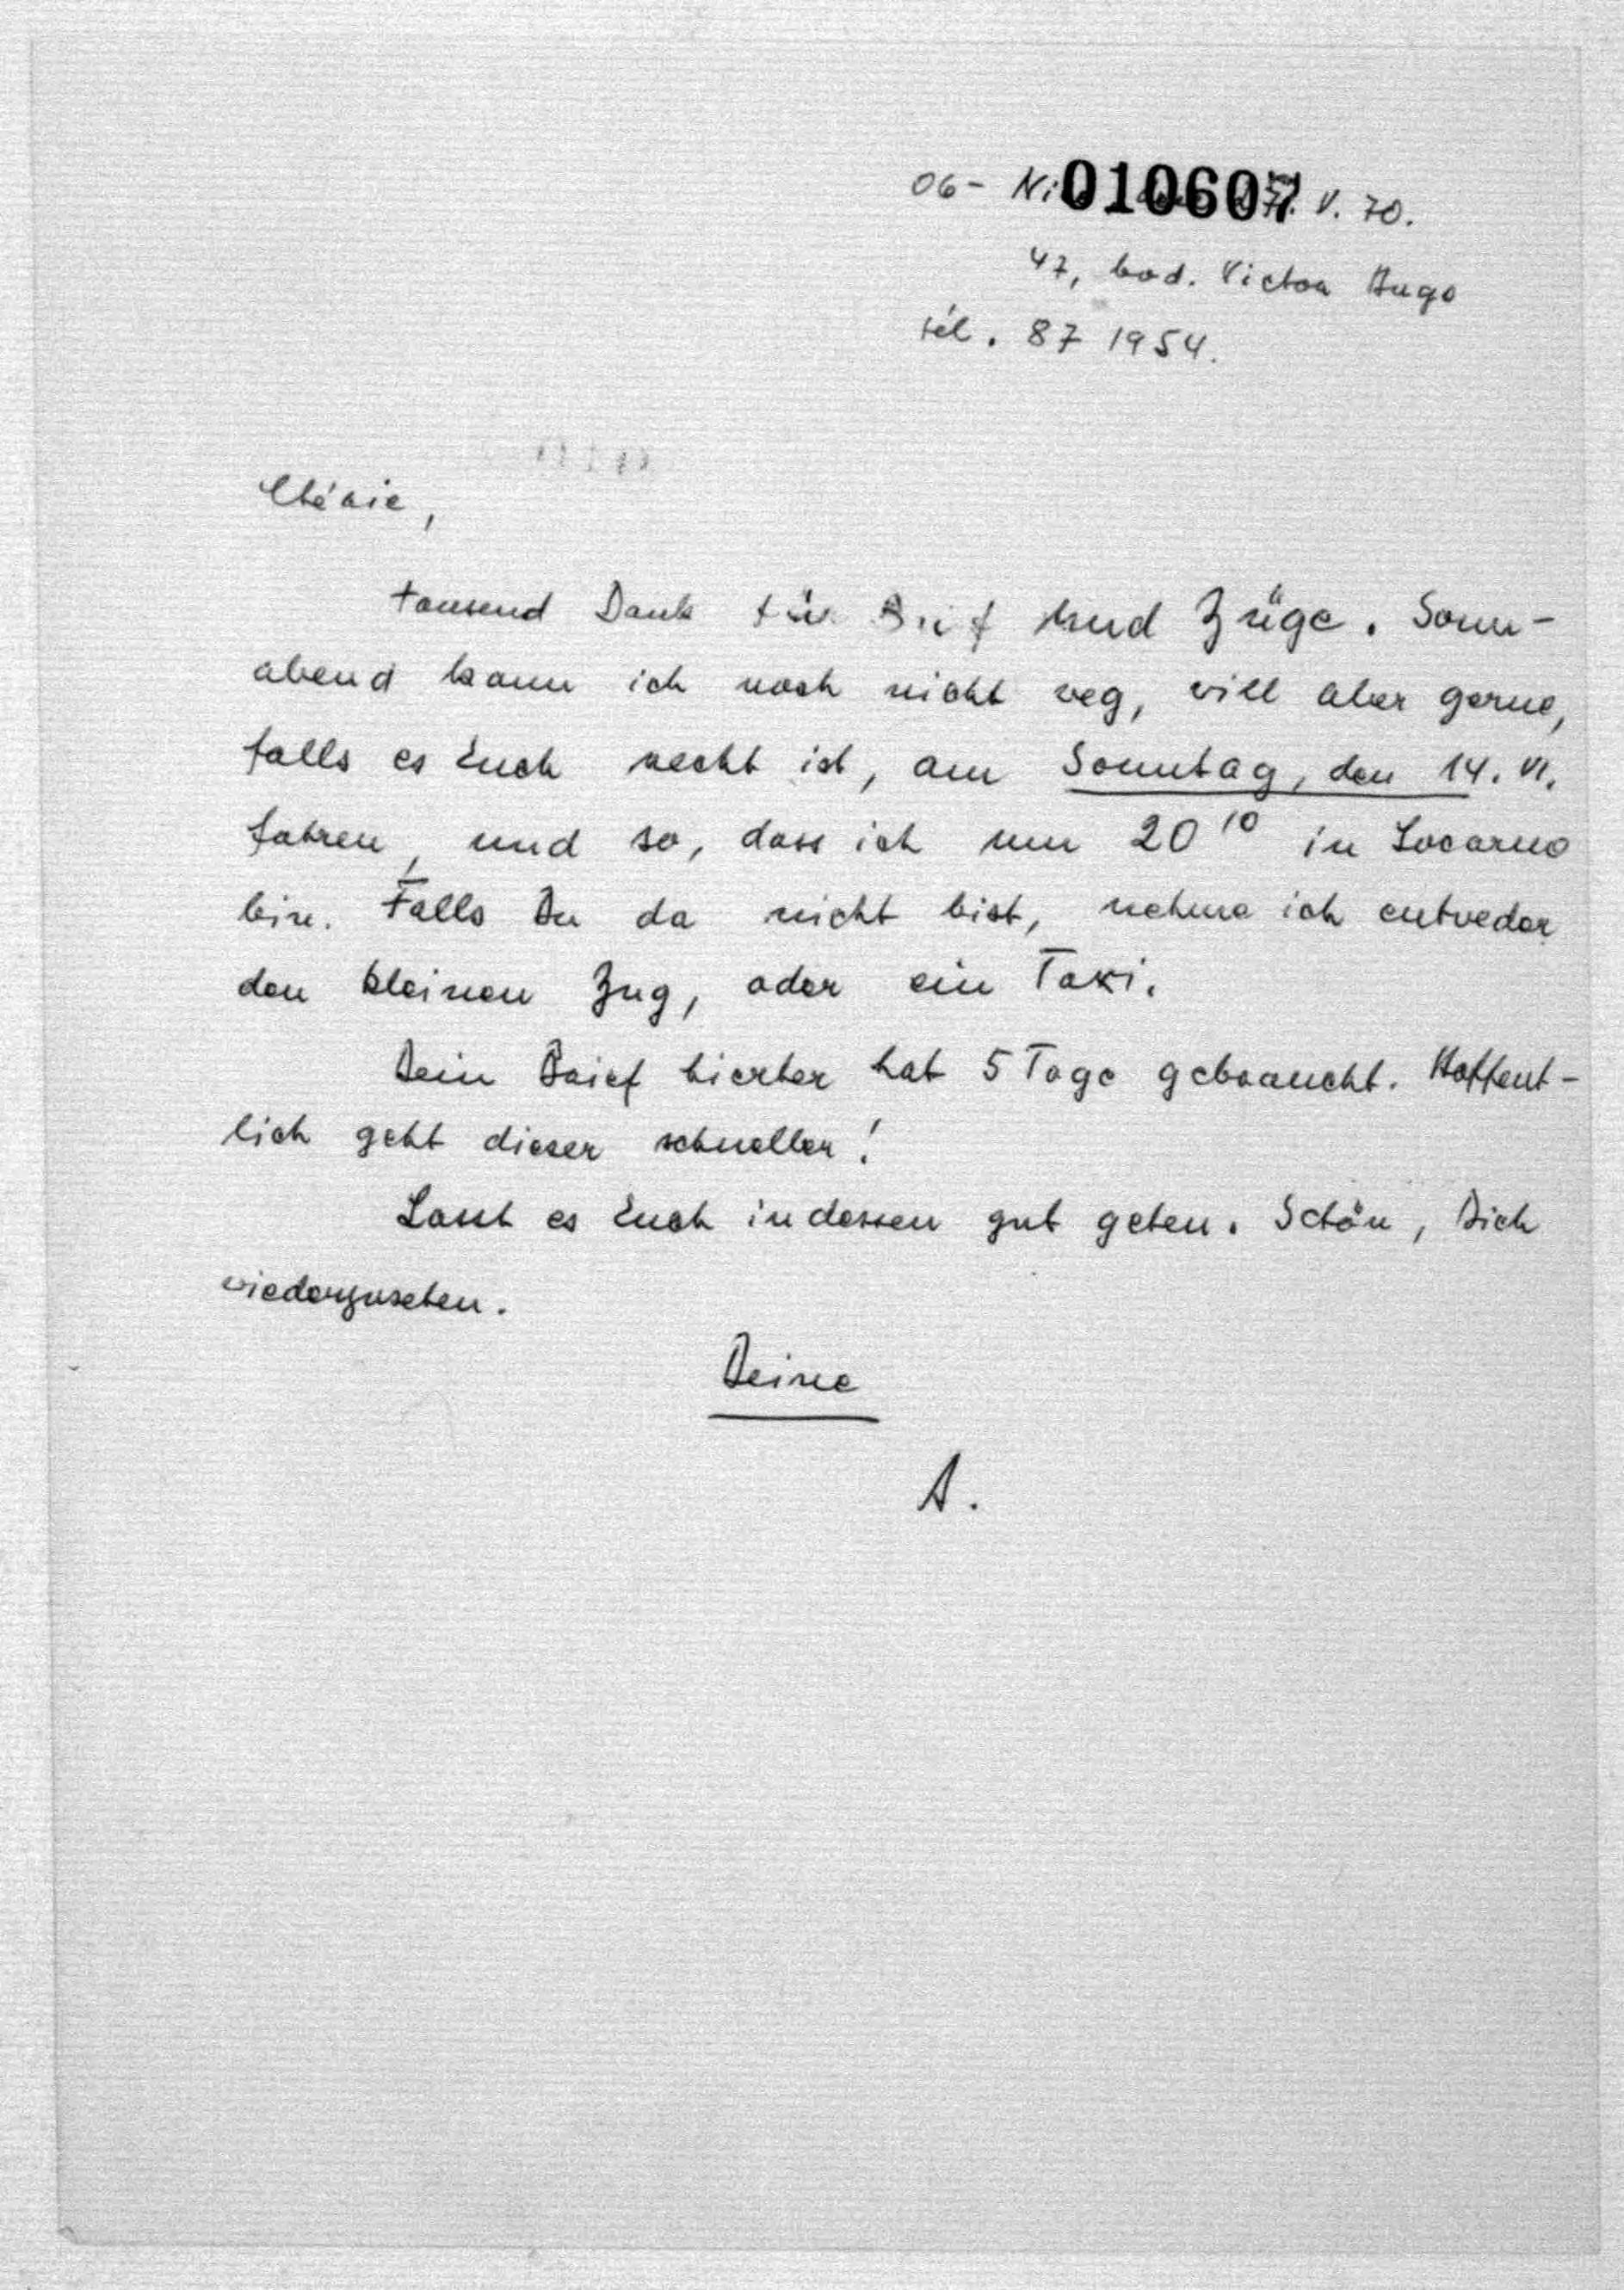 010607
06- V. 70.
47, bvd. Victor Hugo
tél. 87 1954.
Chérie,
tausend Dank für Brief und Züge. Sonn-
abend kann ich noch nicht weg, will aber gerne,
falls es Euch recht ist, am Sonntag, den 14. VI.
fahren, und so, dass ich um 20¹⁰ in Locarno
bin. Falls Du da nicht bist, nehme ich entweder
den kleinen Zug, oder ein Taxi.
Dein Brief hierher hat 5 Tage gebraucht. Hoffent-
lich geht dieser schneller!
Lasst es Euch indessen gut gehen. Schön, Dich
wiederzusehen.
Deine
A.